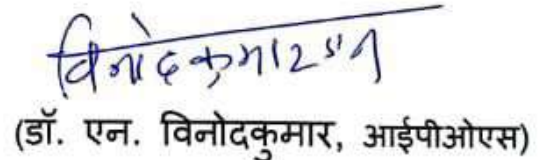 विनोदकुमार एन
(डॉ. एन. विनोदकुमार, आईपीओएस)